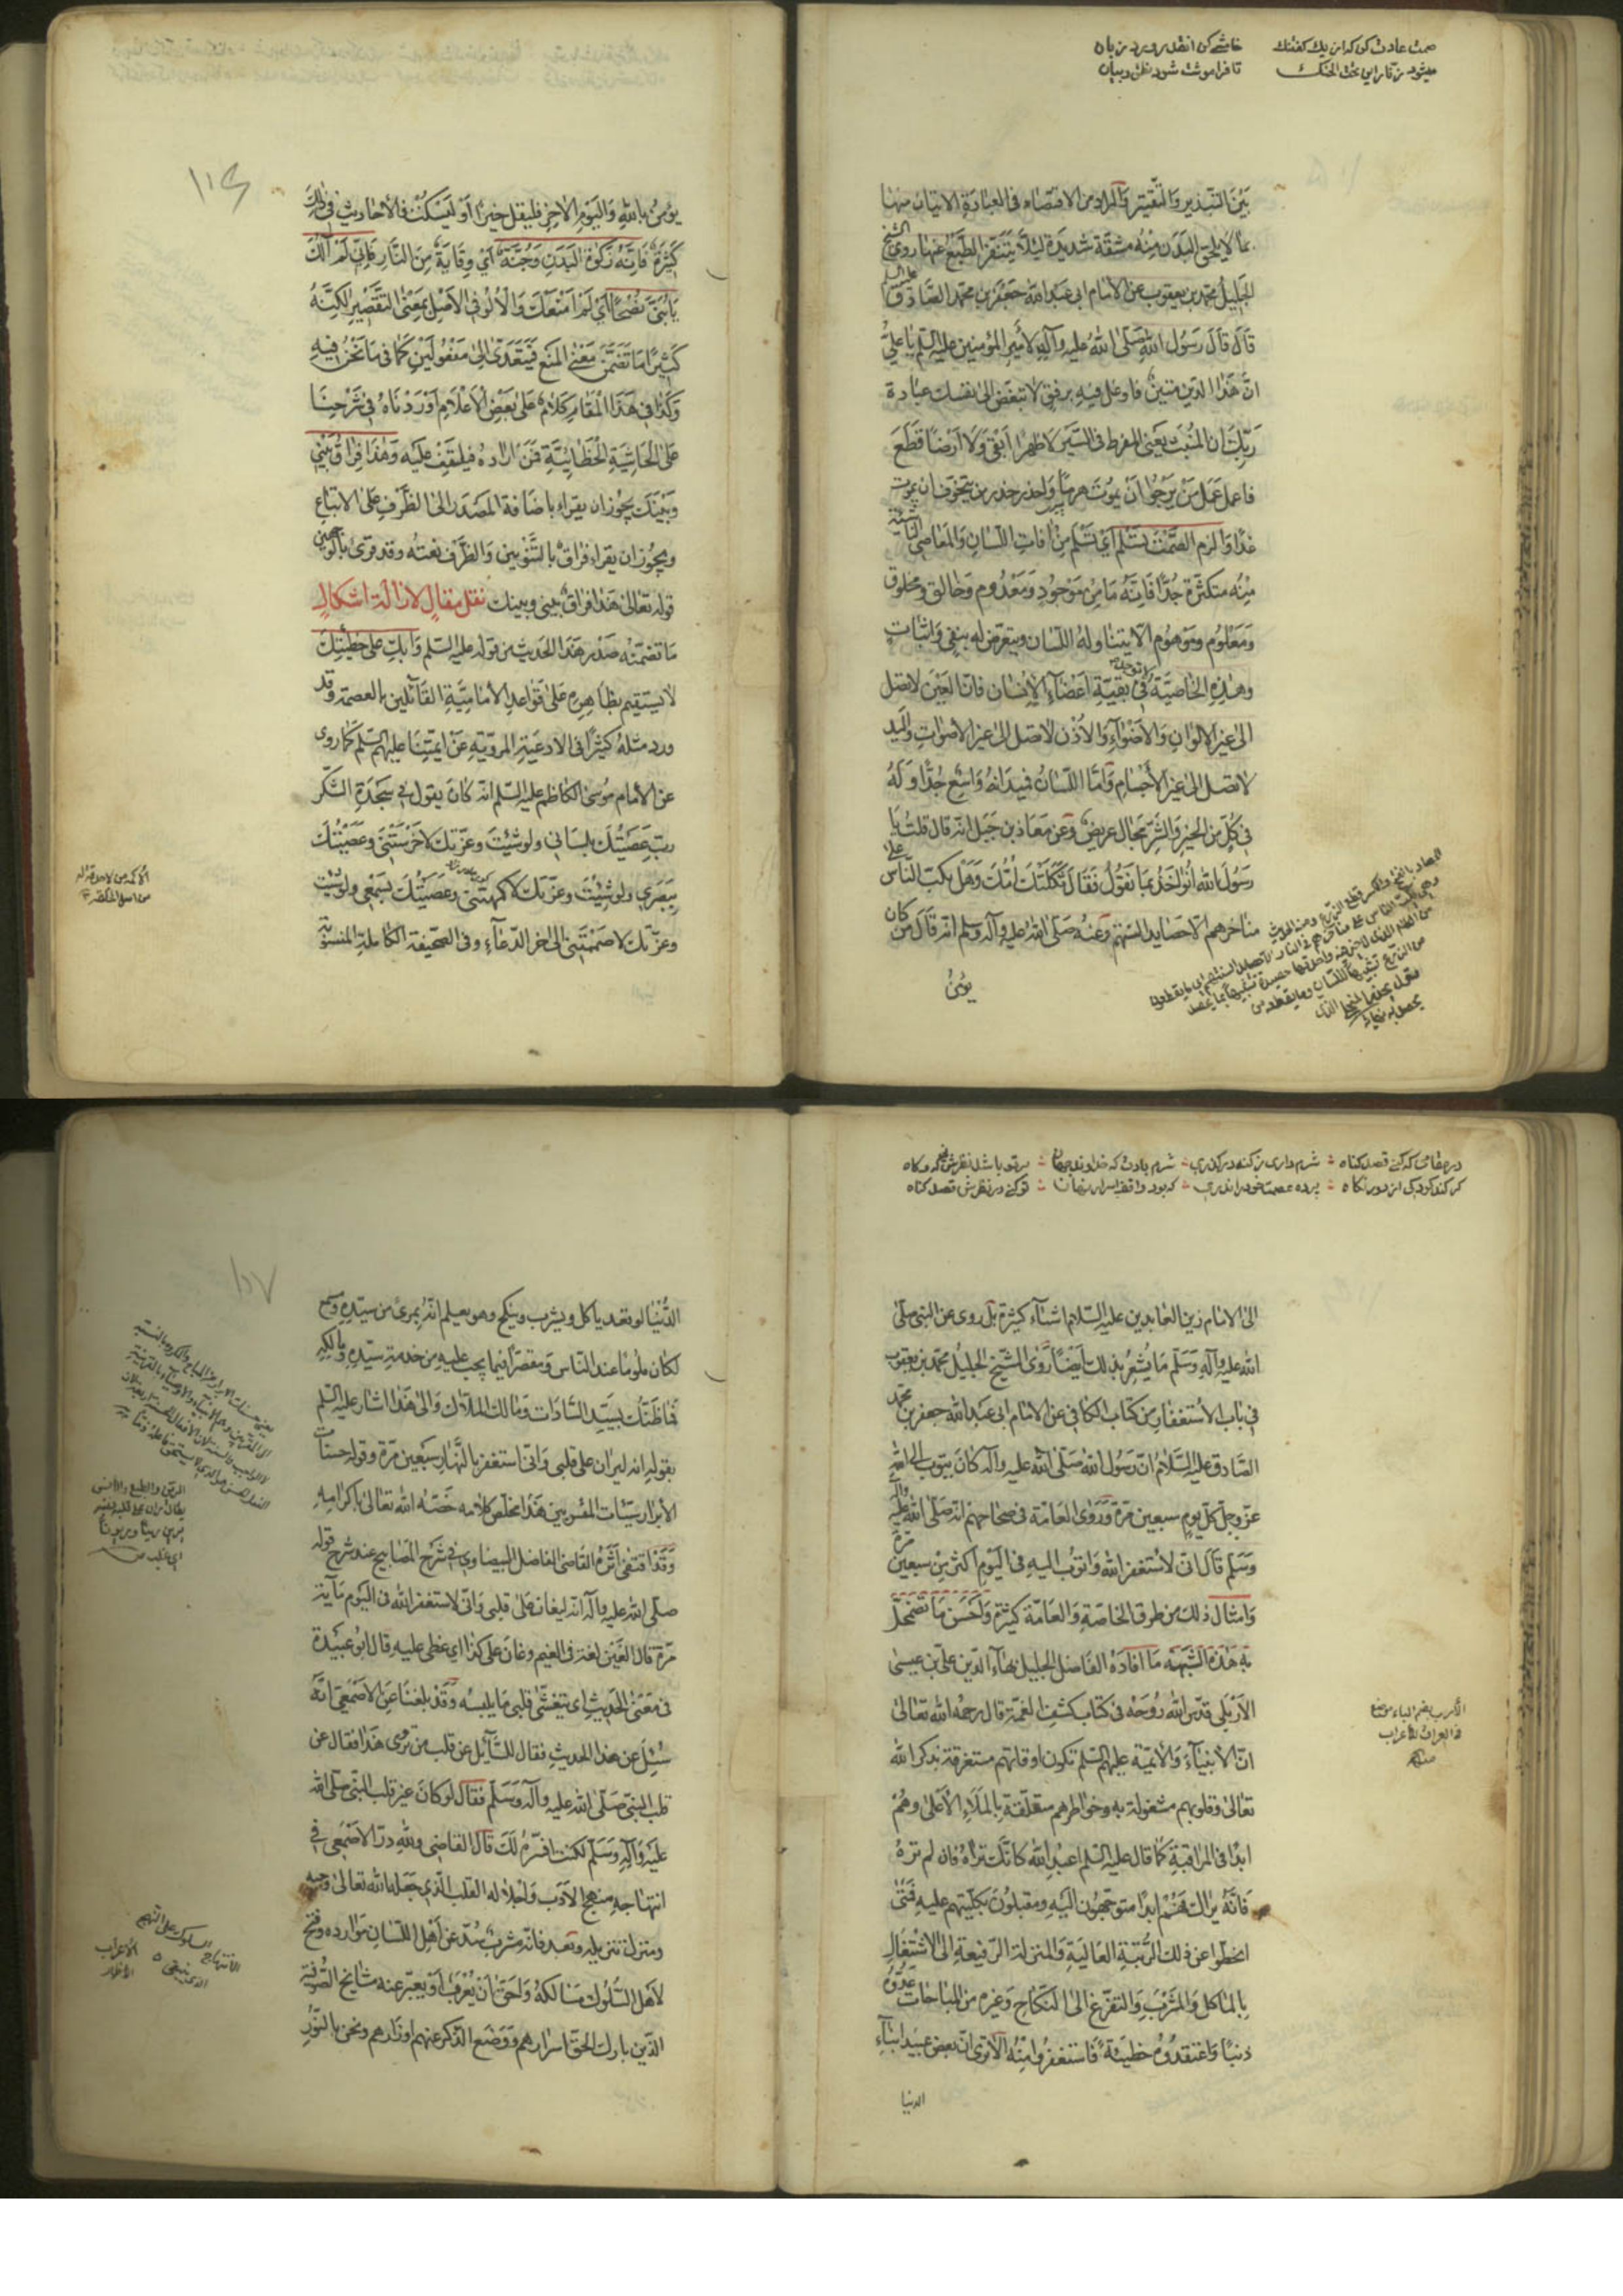 صمت عادت کن که از یک گفتنک
میشود زنار این تحت الحنک
خامشی کن انقدر
تا فراموشت شود نطق و بیان
بَيْنَ التبذير وَالتقتير وَالمراد من الاقتصاد فى العبادة الاتيان منها
بما لا يلحق البدن منه مشقة شديدة لئلا يتنفر الطبع عنها روى الشيخ
الجليل محمد بن يعقوب عن الامام ابى عبد الله جعفر بن محمد الصادق عليه السلم
قال قال رسول الله صلى الله عليه وآله لأمير المؤمنين عليه السلم يا علىّ
انّ هذا الدين متين فاوغل فيه برفق ولا تبغض الى نفسك عبادة
ربّك ان المنبتّ يعنى المفرط فى السّير لا ظهرا ابقى ولا ارضا قطع
فاعمل عمل من يرجوا ان يموت هرما واحذر حذر من يتخوف ان يموت
غدا والزم الصّمت تسلم اى تسلم من افات اللسان والمعاصى الناشئة
منه متكثرة جدّا فانّه ما من موجود ومعدوم وخالق ومخلوق
ومعلوم وموهوم الا يتناوله اللسان ويتعرض له بنفى واثبات
وهذه الخاصيّة لا توجد فى بقيّة اعضآء الانسان فانّ العين لا تصل
الى غير الالوان والاضوآء والاذن لا تصل الى غير الاصوات واليد
لا تصل الى غير الأجسام وامّا اللسان فميدانه واسع جدّا وله
فى كلّ من الخير والشرّ مجال عريض وعن معاذ بن جبل انه قال قلت يا
رسول الله انؤاخذ بما نقول فقال ثكلتك امّك وهل يكبّ النّاس على
مناخرهم الا حصايد السنتهم وعنه صلى الله عليه وآله وسلم انه قال من كان
يؤمن
١١٤
يؤمن بالله واليوم الاخر فليقل خيرا او ليسكت فالأحاديث فى ذلك
كثيرة فانّه زكوة البدن وجنّة اى وقاية من النّار فانى لم آلك
يا بنىّ نصحا اى لم امنعك والألو فى الاصل بمعنى التقصير لكنّه
كثيرا ما تضمّن معنى المنع فيتعدّى الى مفعولين كما فى ما نحن فيه
وكذا فى هذا المقام كلام على بعض الاعلام اوردناه فى شرحنا
على الحاشية الخطائيّة فمن اراده فليقف عليه وهذا فراق بينى
وبينك يجوز ان يقراء باضافة المصدر الى الظرف على الاتباع
ويجوز ان يقراء فراق بالتنوين والظرف نعته وقد قرئ بالوجهين
قوله تعالى هذا فراق بينى وبينك نقل مقال لازالة اشكال
ما تضمّنه صدر هذا الحديث من قوله عليه السلم وابك على خطيئتك
لا يستقيم بظاهره على قواعد الأماميّة القآئلين بالعصمة وقد
ورد مثله كثيرا فى الادعية المرويّة عن ائمّتنا عليهم السلم كما روى
عن الأمام موسى الكاظم عليه السلم انه كان يقول فى سجدة الشكر
ربّ عصيتك بلسانى ولو شئت وعزّتك لاخرستنى وعصيتك
ببصرى ولو شئت وعزّتك لاكمهتنى وعصيتك بسمعى ولو شئت
وعزّتك لاصممتنى الى اخر الدّعآء وفى الصحيفة الكاملة المنسوبة
شرم داری ز گنه درگذری
شرم بادت که خداوند جهان
گر کند کودکی از دور نگاه
پرده عصمت خود را ندری
که بود واقف اسرار نهان
تو کنی در نظرش قصد گناه
الى الامام زين العابدين عليه السّلام اشيآء كثيرة بل روى عن النبى صلى
الله عليه وآله وسلم ما يشعر بذلك ايضا روى الشيخ الجليل محمد بن يعقوب
فى باب الأستغفار من كتاب الكافى عن الامام ابى عبد الله جعفر بن محمد
الصادق عليه السّلام انّ رسول الله صلى الله عليه وآله كان يتوب الى الله
عزّ وجلّ كلّ يوم سبعين مرة وروى العامّة فى صحاحهم انه صلى الله عليه وآله
وسلم قال انى لاستغفر الله واتوب اليه فى اليوم اكثر من سبعين مرّة
وامثال ذلك من طرق الخاصة والعامّة كثيرة واحسن ما تضمحلّ
به هذه الشبهة ما افاده الفاضل الجليل بهآء الدّين على بن عيسى
الاربلى قدّس الله روحه فى كتاب كشف الغمّة قال رحمه الله تعالى
انّ الأنبيآء والأئمّة عليهم السلم تكون اوقاتهم مستغرقة بذكر الله
تعالى وقلوبهم مشغولة به وخواطرهم متعلّقة بالملاء الأعلى وهم
ابدا فى المراقبة كما قال عليه السلم اعبد الله كانّك تراه فان لم تره
فانّه يراك فهم ابدا متوجّهون اليه ومقبلون بكلّيتهم عليه فمتى
انحطّوا عن ذلك الرّتبة العالية والمنزلة الرّفيعة الى الاشتغال
بالماكل والمشرب والتفرّغ الى النكاح وغيره من المباحات عدّوه
ذنبا واعتقدوه خطيئة فاستغفروا منه الا ترى انّ بعض عبيد ابنآء
الدنيا
١١٧
الدّنيا لو قعد ياكل ويشرب وينكح وهو يعلم انّه بمرئ من سيّده ومسمع
لكان ملوما عند الناس ومقصّرا فيما يجب عليه من خدمة سيّده ومالكه
فما ظنّك بسيّد السّادات ومالك الملاّك والى هذا اشار عليه السلم
بقوله انه ليران على قلبى وانى استغفر بالنّهار سبعين مرّة وقوله حسنات
الأبرار سيّئات المقربين هذا ملخّص كلامه خصّه الله تعالى باكرامه
وقد اقتفى اثره القاضى الفاضل البيضاوى فى شرح المصابيح عند شرح قوله
صلى الله عليه وآله انه ليغان على قلبى وانى لاستغفر الله فى اليوم مآية
مرة قال الغين لغة فى الغيم وغان على كذا اى غطى عليه قال ابو عبيدة
فى معنى الحديث اى يتغشّى قلبى ما يلبسه وقد بلغنا عن الاصمعى انّه
سئل عن هذا الحديث فقال للسّآئل عن قلب من تروى هذا فقال عن
قلب النبى صلى الله عليه وآله وسلم فقال لو كان غير قلب النبى صلى الله
عليه وآله وسلم لكنت افسّره لك قال القاضى ولله درّ الاصمعى فى
انتهاجه منهج الأدب واجلاله القلب الّذى جعله الله تعالى موقع وحيه
ومنزل تنزيله وبعد فانّه مشرب سدّ عن اهل اللسان موارده وفتح
لاهل السّلوك مسالكه واحقّ ان يعرف او يعبّر عنه مشايخ الصّوفية
الّذين بارك الحقّ اسرارهم ووضع الذّكر عنهم اوزارهم ونحن بالنّور